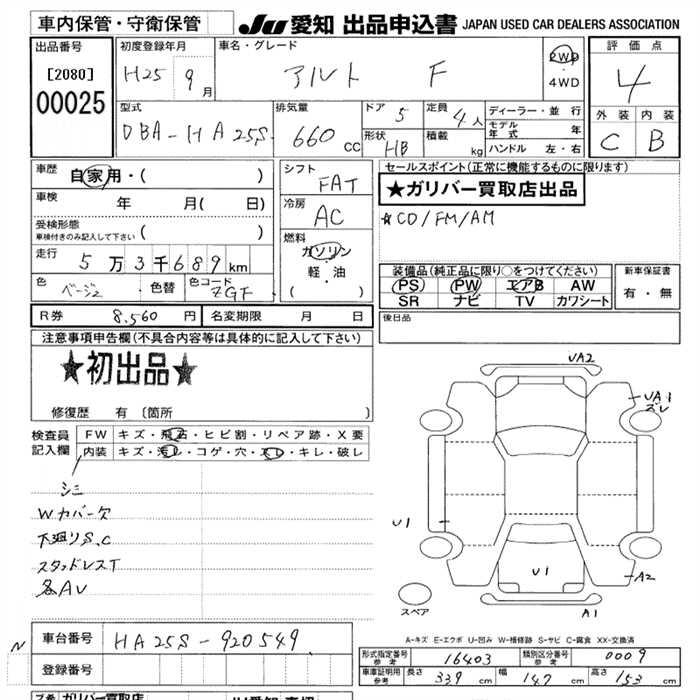 車内保管・守衛保管
JU 愛知 出品申込書 JAPAN USED CAR DEALERS ASSOCIATION
出品番号
[2080]
00025
初度登録年月
H25 9月
車名・グレード
アルト F
2WD
・
4WD
評価点
4
外装 内装
C B
型式
DBA-HA25S
排気量
660 CC
ドア 5
形状 HB
定員 4人
積載 kg
ディーラー・並行
モデル年式 年
ハンドル 左・右
車歴
自家用・( )
車検
年 月( 日)
受検形態
車検付きのみ記入して下さい ( )
走行
5万3千689km
色 ベージュ 色替 色コード ZGF
シフト
FAT
冷房
AC
燃料
ガソリン
軽・油
( )
セールスポイント(正常に機能するものに限ります)
★ガリバー買取店出品
☆CD/FM/AM
装備品(純正品に限り○をつけてください)
PS PW エアB AW
SR ナビ TV カワシート
新車保証書
有・無
後日品
R券 8,560円 名変期限 月 日
注意事項申告欄(不具合内容等は具体的に記入して下さい)
★初出品★
修復歴 有 〔箇所 〕
検査員記入欄
FW キズ・飛石・ヒビ割・リペア跡・X要
内装 キズ・汚レ・コゲ・穴・スレ・キレ・破レ
シミ
Wカバー欠
下廻りS.C
スタッドレスT
各AU
UA2
UA1
ズレ
U1
U1
A2
A1
スペア
A-キズ E-エクボ U-凹み W-補修跡 S-サビ C-腐食 XX-交換済
N
車台番号 HA25S-920549
登録番号
形式指定番号 参考 16403 類別区分番号 参考 0009
車庫証明用 参考 長さ 339 cm 幅 147 cm 高さ 153 cm
ガリバー買取店
JU愛知